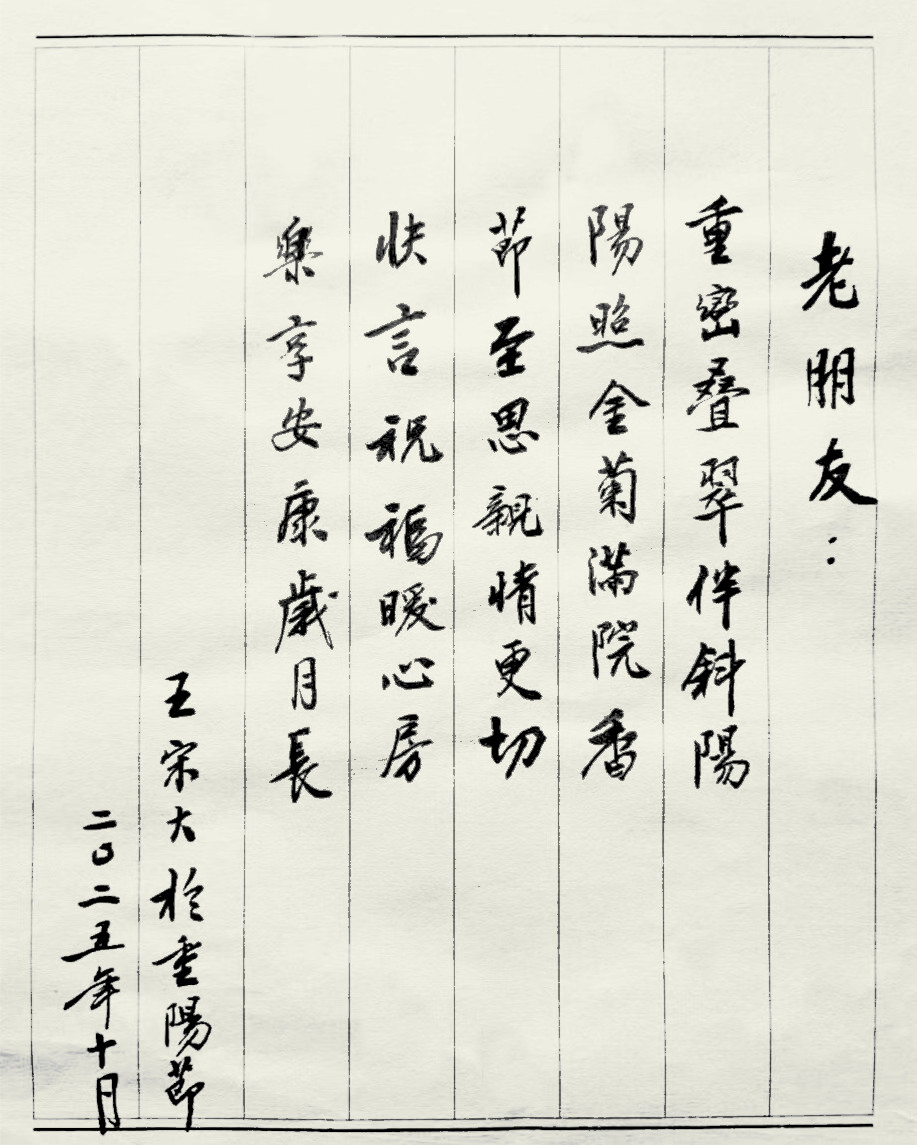 老朋友：
重巒叠翠伴斜陽
陽照金菊滿院香
節至思親情更切
快言祝福暖心房
樂享安康歲月長
王宗大於重陽節
二〇二五年十月